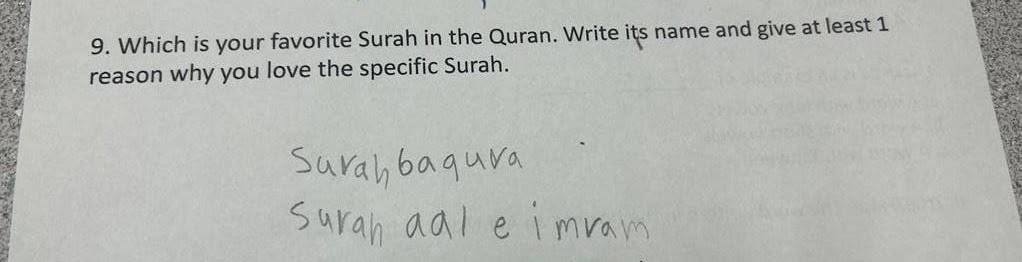 9. Which is your favorite Surah in the Quran. Write its name and give at least 1
reason why you love the specific Surah.
Surah baqura
Surah aal e imram